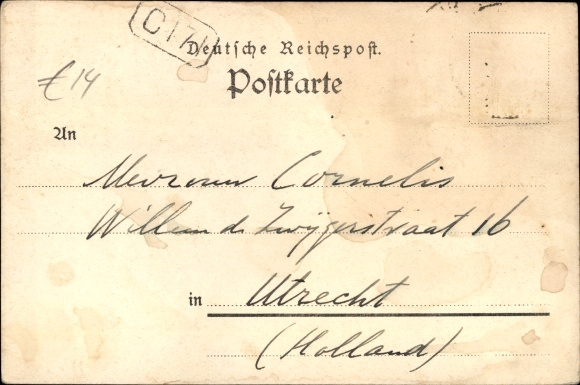 Deutsche Reichspost.
Postkarte
£14
An
Mevrouw Cornelis
Willem de Zwijgerstraat 16
in Utrecht
(Holland)